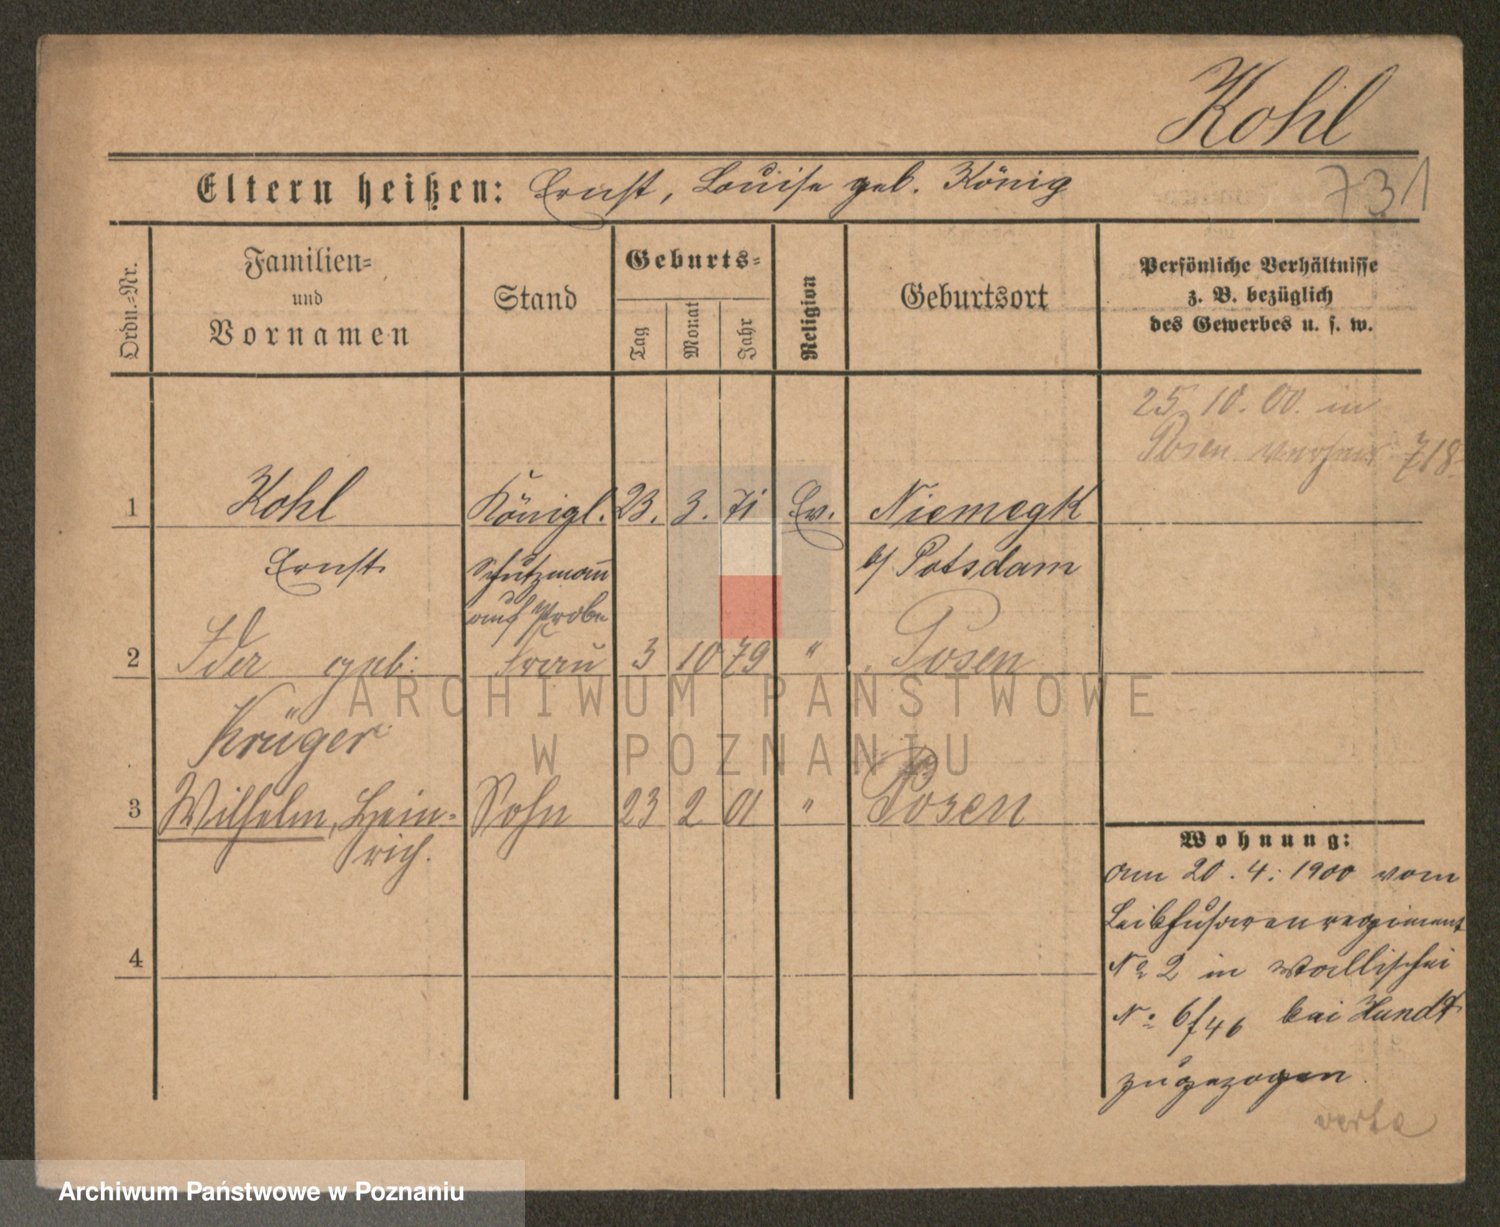 Kohl
731
Eltern heißen: Ernst, Louise geb. König
Ordn.-Nr.
Familien-
und
Vornamen
Stand
Geburts-
Tag
Monat
Jahr
Religion
Geburtsort
Persönliche Verhältnisse
z. B. bezüglich
des Gewerbes u. s. w.
25. 10. 00. in
Posen 718
1 Kohl Königl. 23. 3. 71 Ev. Niemegk
Ernst Schutzmann b/ Potsdam
auf Probe
2 Ida geb: Frau 3 10 79 " Posen
Krüger
3 Wilhelm, Hein- Sohn 23 2 01 " Posen
rich.
4
Wohnung:
am 20. 4. 1900 vom
Leibhusarenregiment
No 2 in Wallischei
No 6/46 bei Hundt
zugezogen
verte
ARCHIWUM PAŃSTWOWE
W POZNANIU
Archiwum Państwowe w Poznaniu